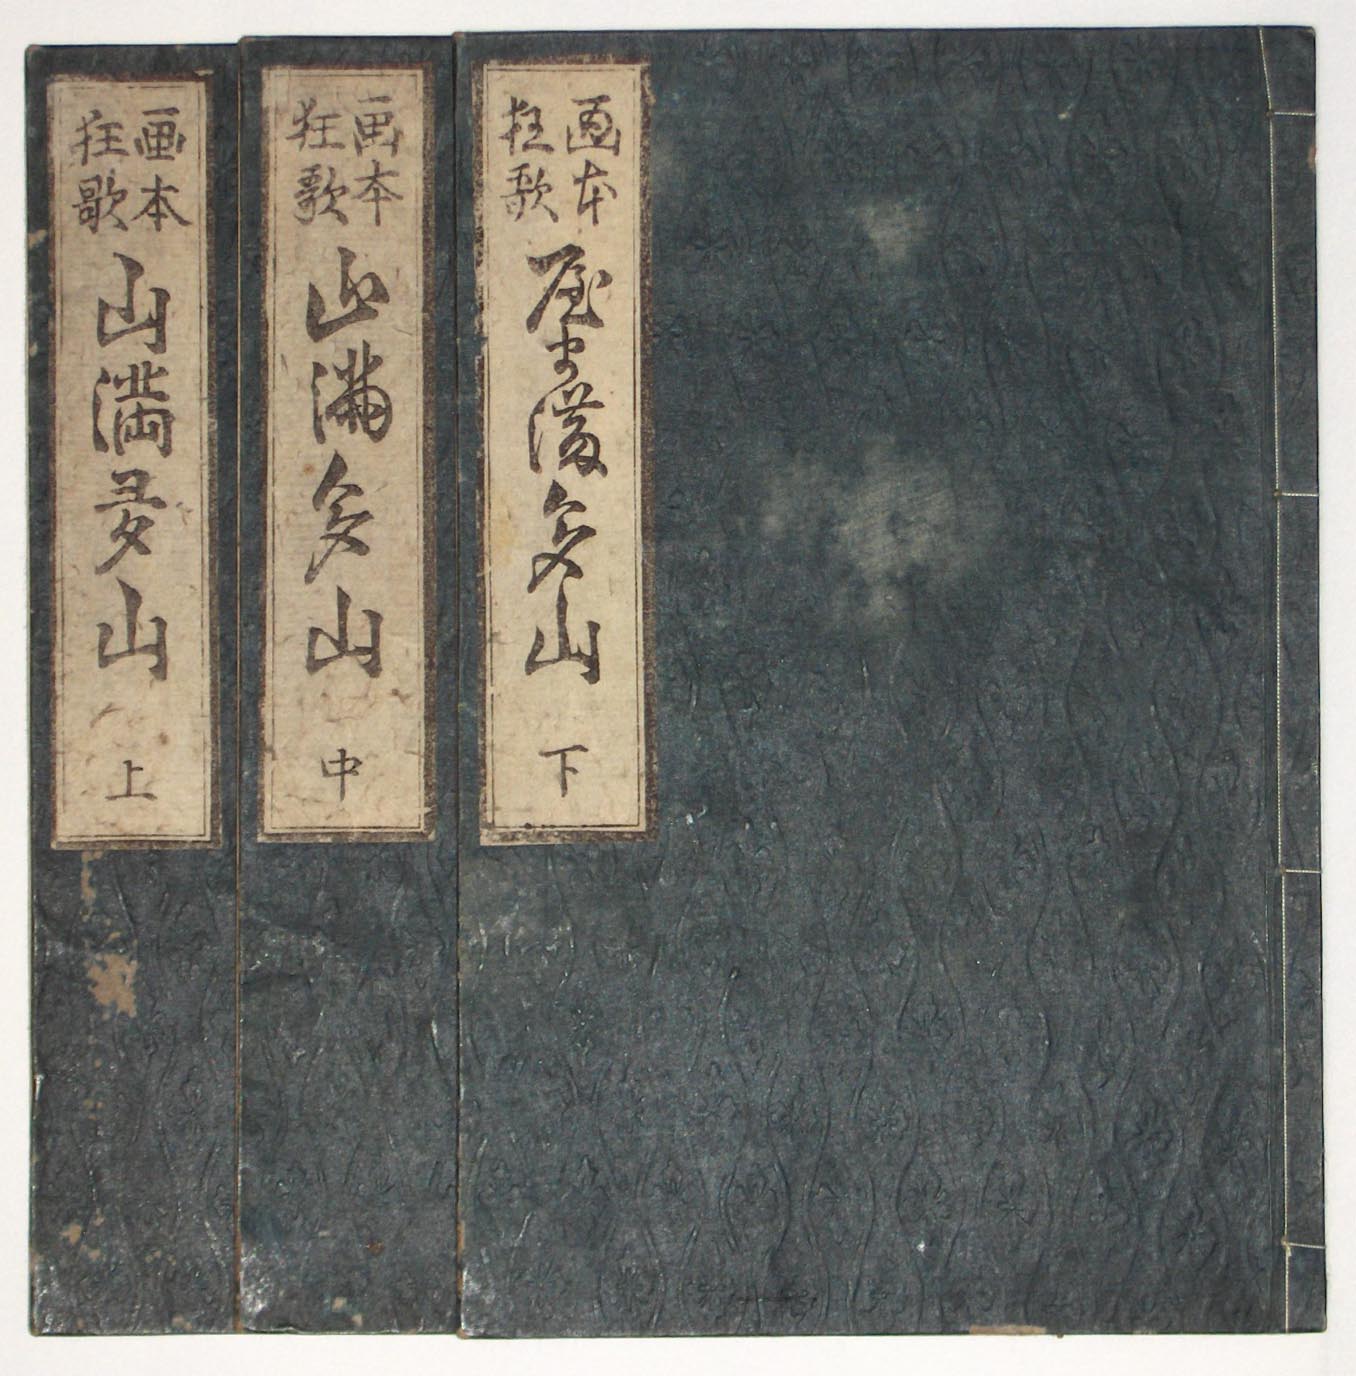 画本
狂歌
山満多山
上
画本
狂歌
山満多山
中
画本
狂歌
屋ま満多山
下